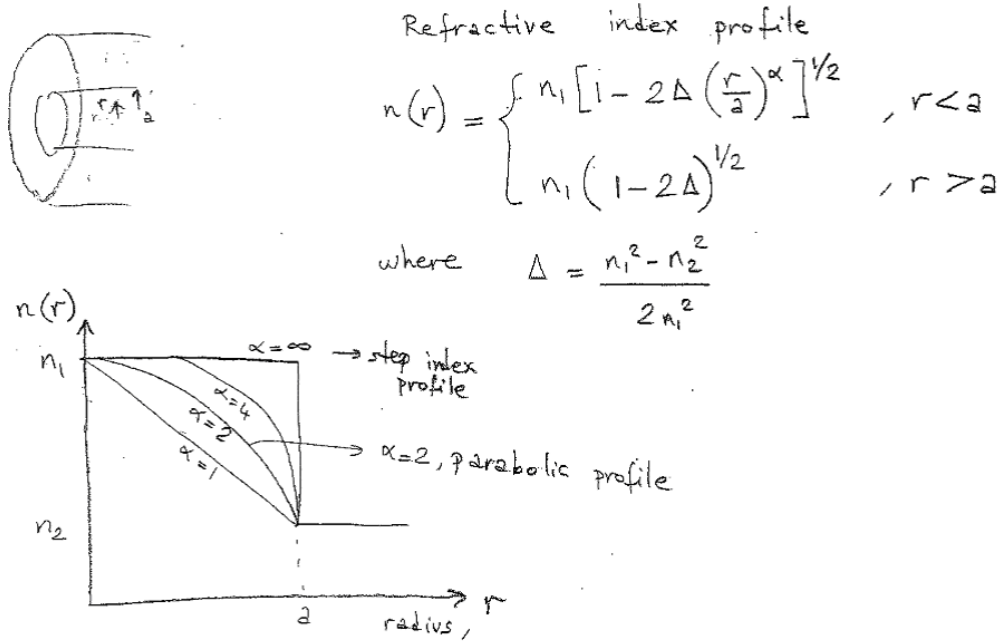 Refractive index profile
n(r) = { n₁ [1 - 2Δ (r/a)^α]^1/2 , r<a
n₁ (1-2Δ)^1/2 , r >a
r a
where Δ = (n₁² - n₂²) / 2n₁²
n(r)
n₁
α=∞ → step index
profile
α=4
α=2
α=1
α=2, parabolic profile
n₂
a
radius, r